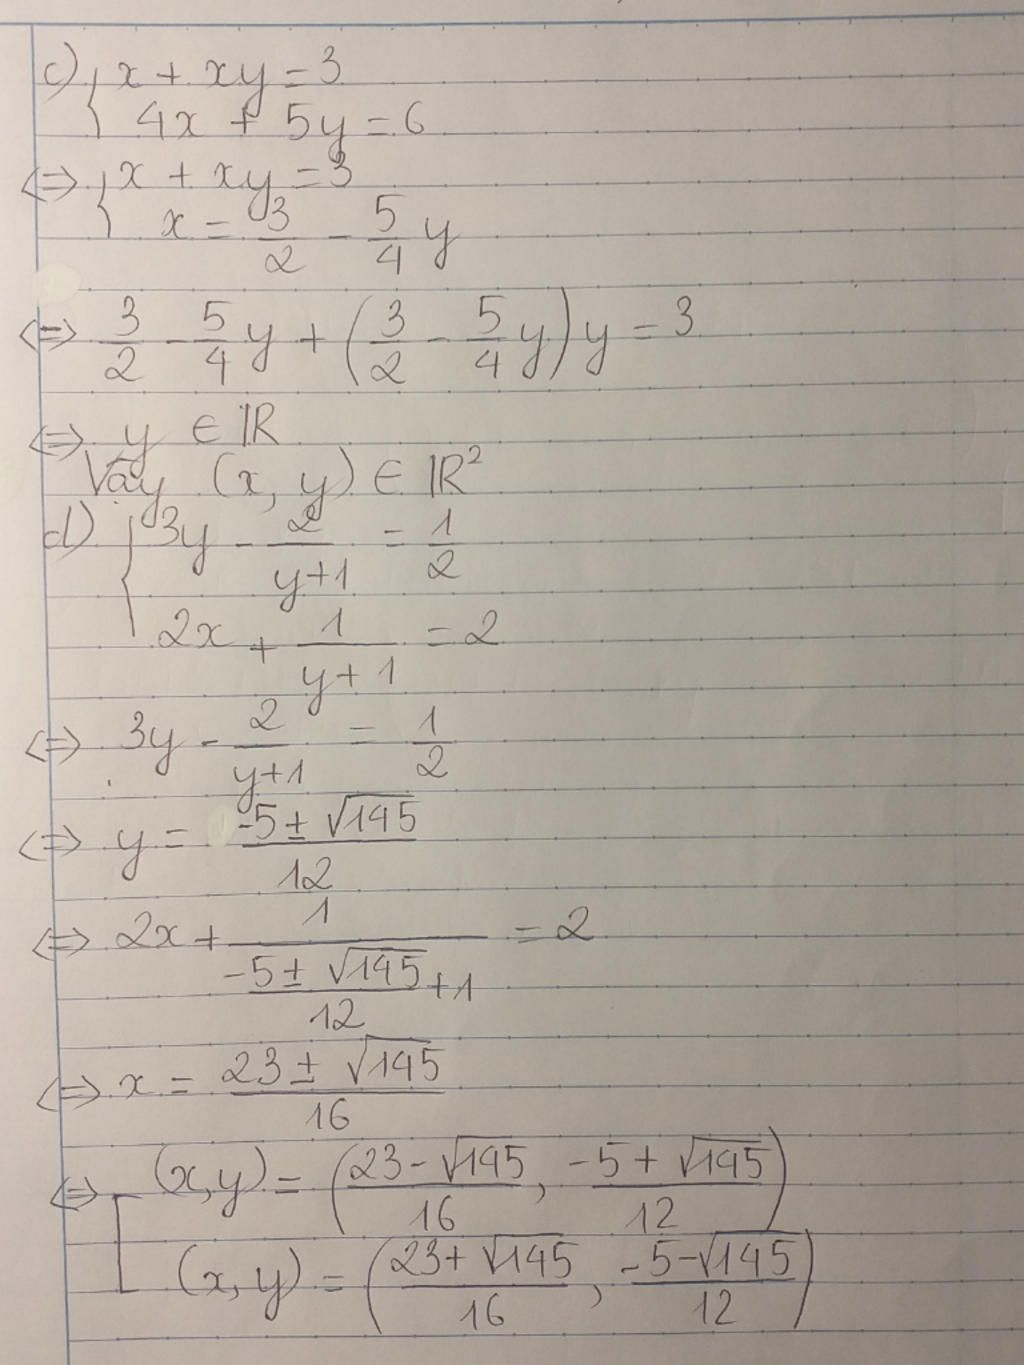 c) { x + xy = 3
4x + 5y = 6
⇔ { x + xy = 3
x = 3/2 - 5/4 y
⇔ 3/2 - 5/4 y + (3/2 - 5/4 y) y = 3
⇔ y ∈ ℝ
Vậy (x, y) ∈ ℝ²
d) { 3y - 2/(y+1) = 1/2
2x + 1/(y+1) = 2
⇔ 3y - 2/(y+1) = 1/2
⇔ y = (-5 ± √145)/12
⇔ 2x + 1/((-5 ± √145)/12 + 1) = 2
⇔ x = (23 ± √145)/16
⇔ [ (x, y) = ((23 - √145)/16, (-5 + √145)/12)
(x, y) = ((23 + √145)/16, (-5 - √145)/12)